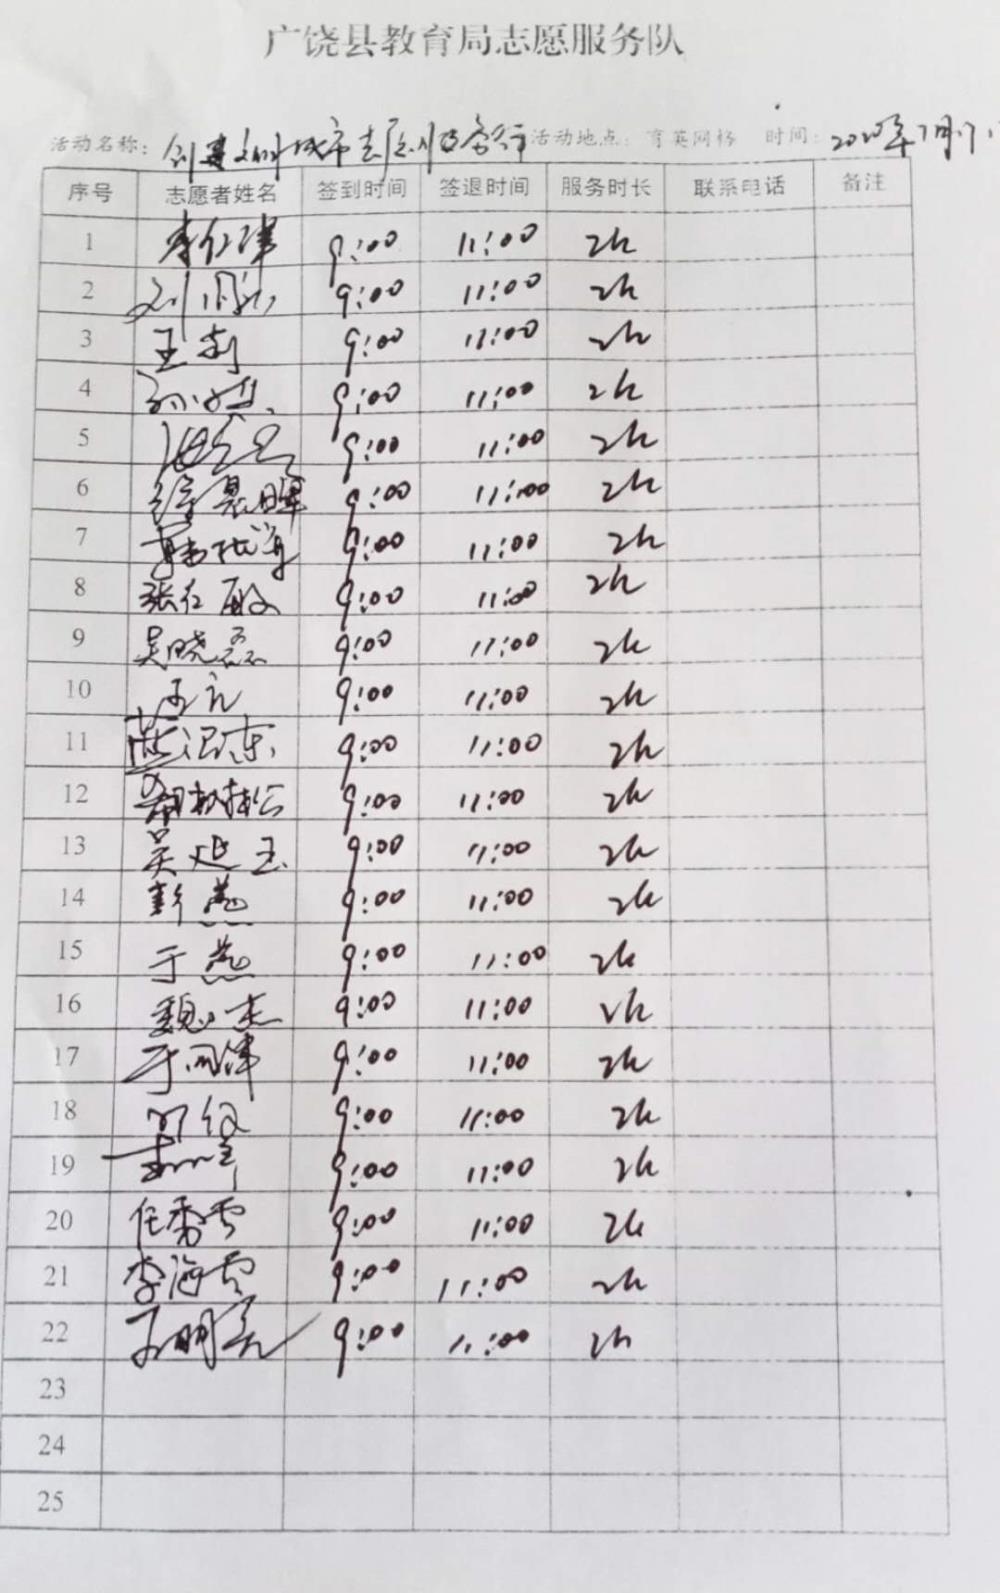 广饶县教育局志愿服务队
活动名称：创建文明城市志愿服务行 活动地点：育英网格 时间：2020年7月17日
序号 志愿者姓名 签到时间 签退时间 服务时长 联系电话 备注
1 李仁津 9:00 11:00 2h
2 9:00 11:00 2h
3 王莉 9:00 11:00 2h
4 9:00 11:00 2h
5 9:00 11:00 2h
6 徐晨晖 9:00 11:00 2h
7 9:00 11:00 2h
8 张红敏 9:00 11:00 2h
9 吴晓磊 9:00 11:00 2h
10 9:00 11:00 2h
11 9:00 11:00 2h
12 9:00 11:00 2h
13 吴延玉 9:00 11:00 2h
14 彭燕 9:00 11:00 2h
15 于燕 9:00 11:00 2h
16 魏杰 9:00 11:00 2h
17 9:00 11:00 2h
18 9:00 11:00 2h
19 9:00 11:00 2h
20 任秀云 9:00 11:00 2h
21 李海云 9:00 11:00 2h
22 王明亮 9:00 11:00 2h
23
24
25